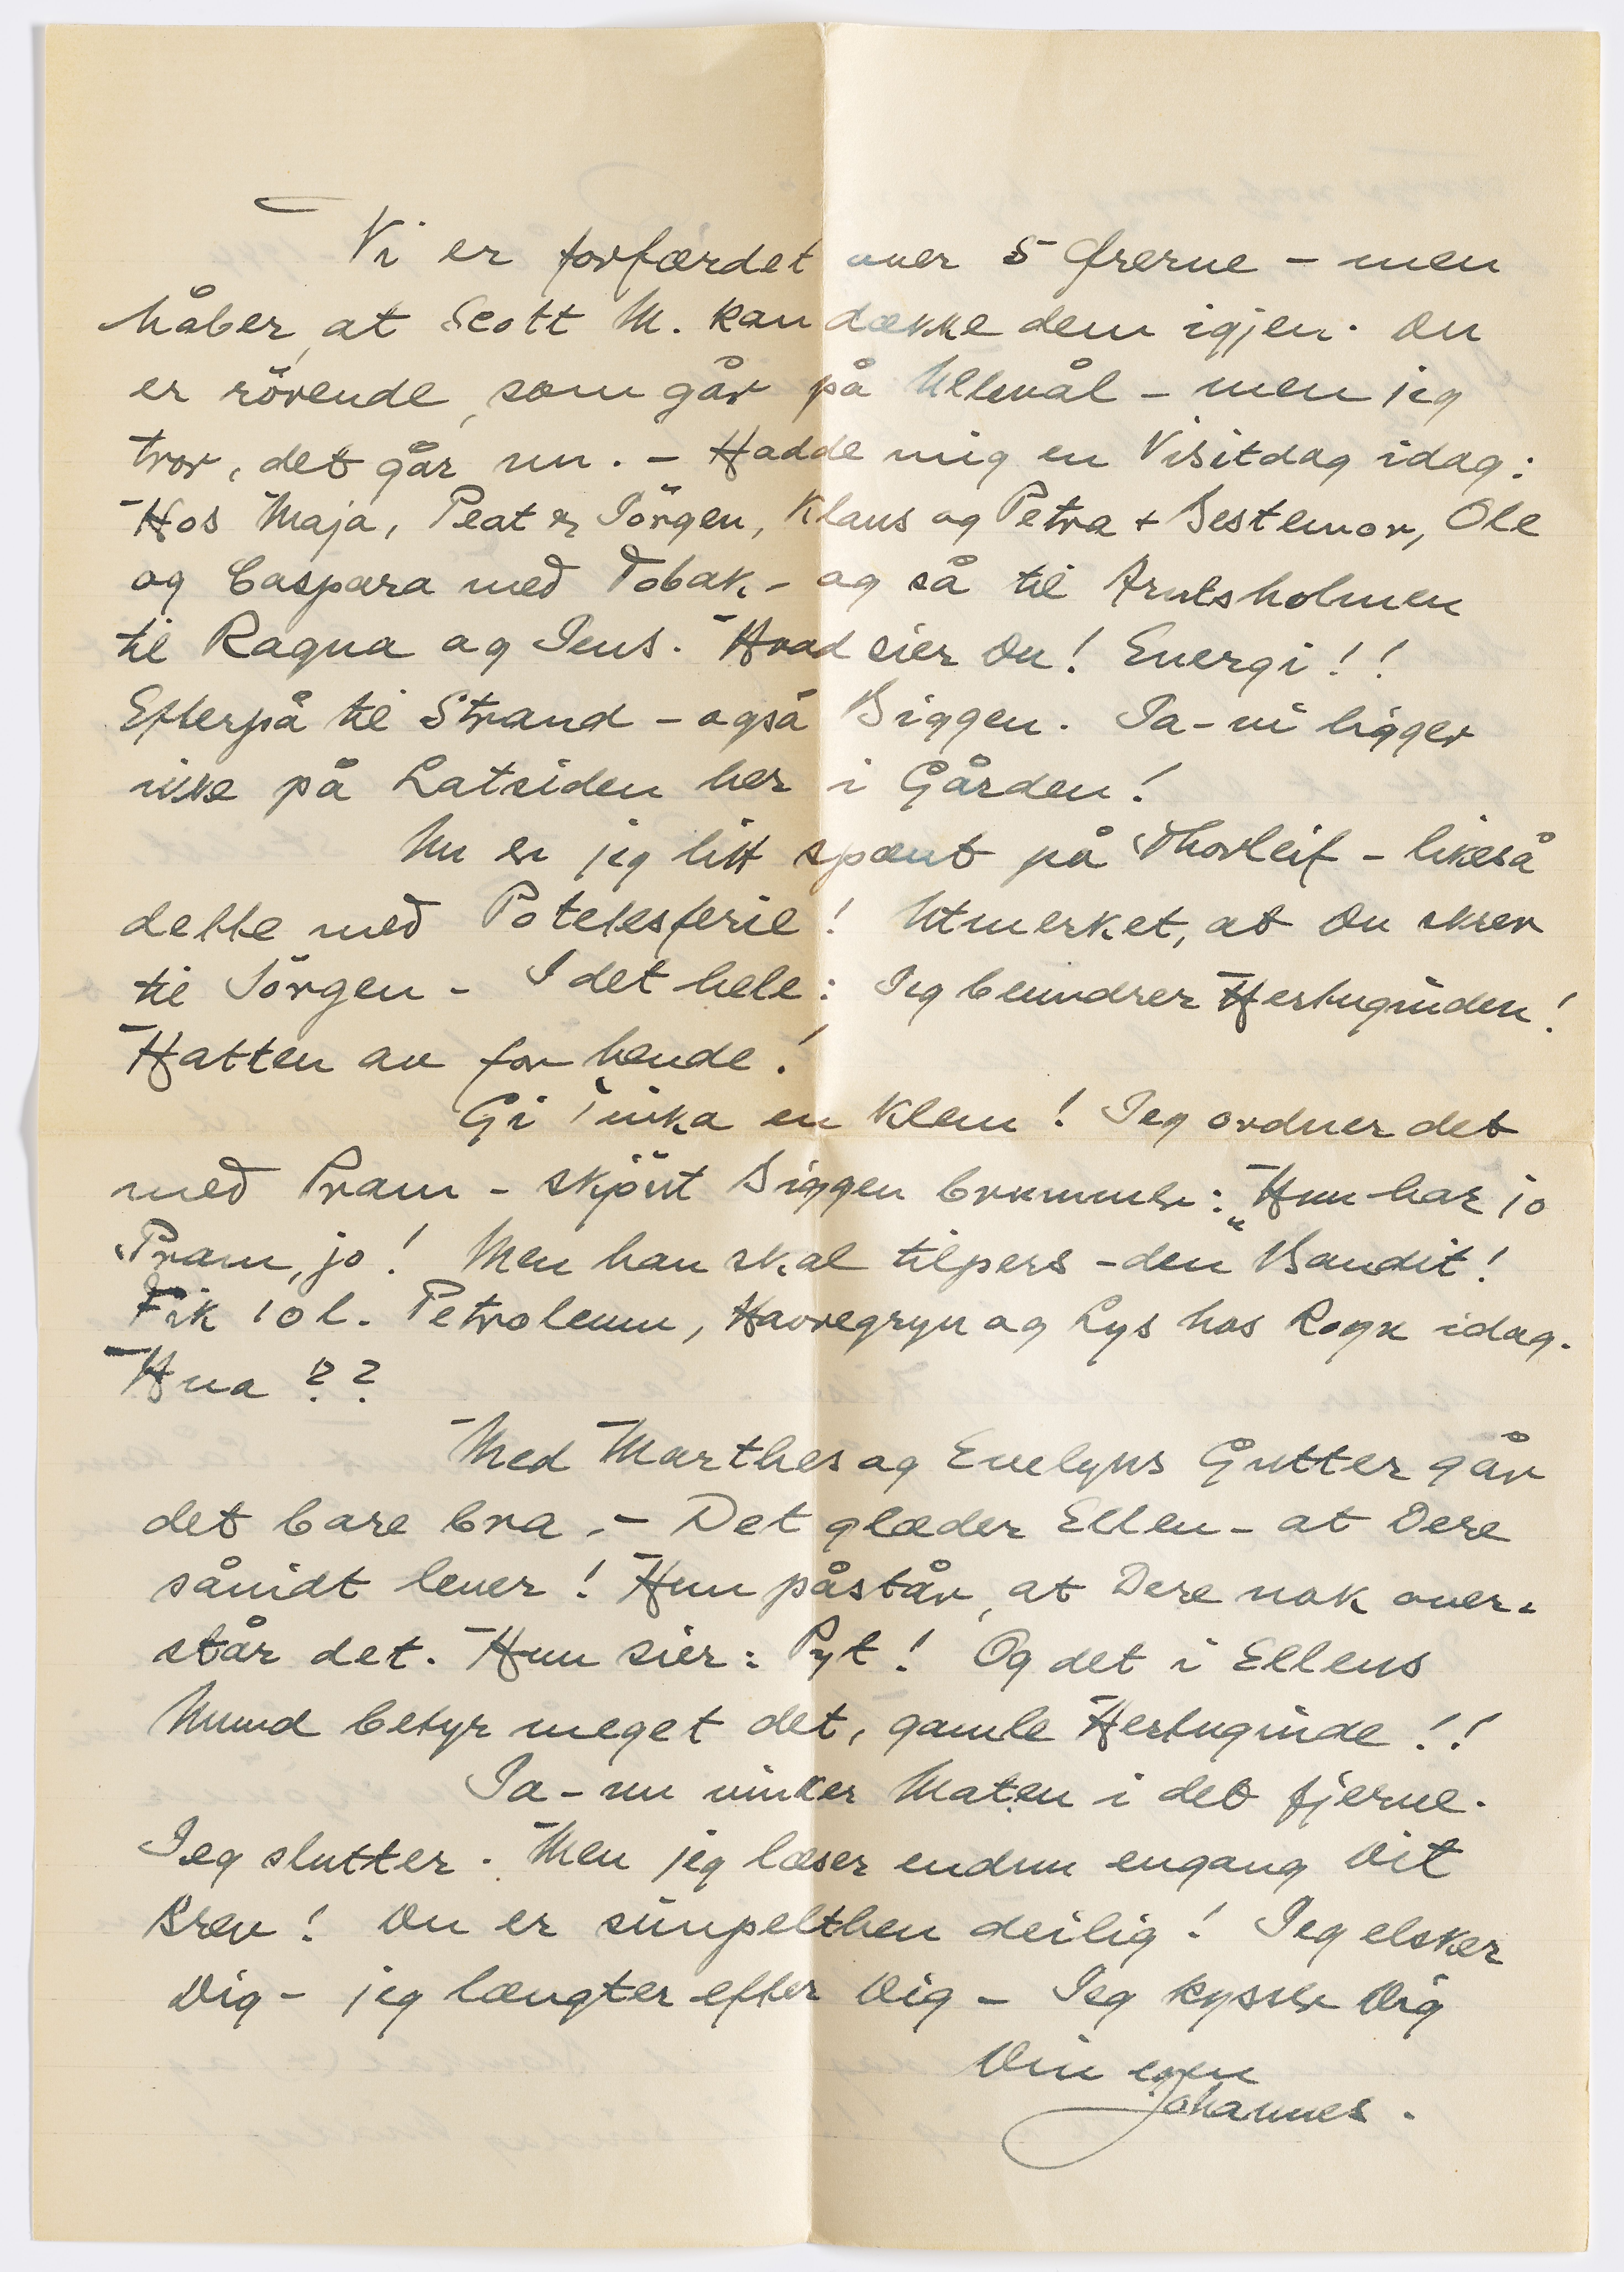 Vi er forfærdet over 5 Ørerne – men
håber, at Scott M. kan dække dem igjen. Du
er rörende, som går på Ullevål – men jeg
tror, det går nu. – Hadde mig en Visitdag idag:
Hos Maja, Peat & Jörgen, Klaus og Petra + Bestemor, Ole
og Caspara med Tobak. – og så til Arntsholmen
til Ragna og Jens. Hvad sier Du! Energi!!
Efterpå til Strand – også Biggen. Ja – vi ligger
ikke på Latsiden her i Gården!
Nu er jeg litt spænt på Thorleif – likeså
dette med Potetesferie! Utmerket, at Du skrev
til Jörgen – I det hele: Jeg beundrer Hertuginden!
Hatten av for hende!
Gi Tinka en Klem! Jeg ordner det
med Pram – skjönt Biggen brummer: „Hun har jo
Pram, jo! Men han skal tilpers – den Bandit!
Fik 10 l. Petroleum, Havregryn og Lys hos idag.
Hva??
Med Marthes og Evelyns Gutter går
det bare bra. – Det glæder Ellen – at Dere
såvidt lever! Hun påstår, at Dere nok over-
står det. Hun sier: Pyt! Og det i Ellens
Mund betyr meget det, gamle Hertuginde!!
Ja – nu vinker Maten i det fjerne.
Jeg slutter. Men jeg læser endnu engang Dit
Brev! Du er simpelthen deilig! Jeg elsker
Dig – jeg længter efter Dig – Jeg kysser Dig
Din egen
Johannes.